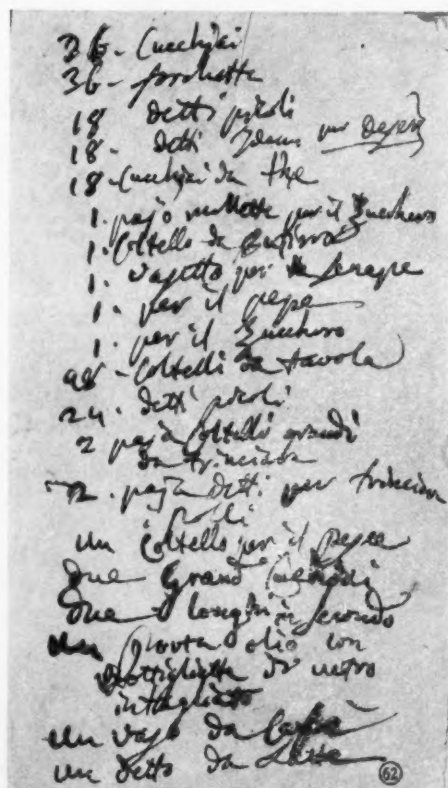 36 - Cucchjai
36 - forchette
18 detti picoli
18 - detti Idem per Deser
18 - Cucchjai da the
1. pajo mollette per il Zucchero
1. Coltello da Butirro
1. vasetto per la Senape
1. per il pepe
1. per il Zucchero
48 - Coltelli da tavola
24. detti picoli
2 paja Coltelli grandi
da trinciare
2. paja detti per trinciare
picoli
un Coltello per il pesce
due Grandi Cucchjai
due
un Porta olio con
Bottigliette di vetro
intagliato
un vaso da Caffè
un detto da Latte
62